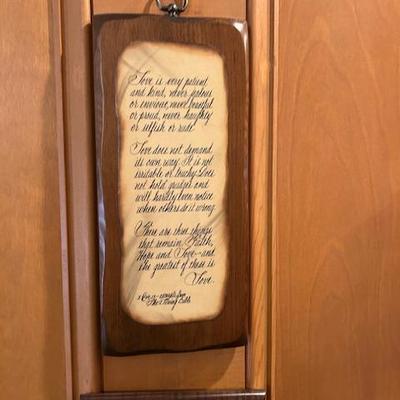 Love is very patient
and kind, never jealous
or envious, never boastful
or proud, never haughty
or selfish or rude.
Love does not demand
its own way. It is not
irritable or touchy. Does
not hold grudges and
will hardly even notice
when others do it wrong.
There are three things
that remain, Faith,
Hope and Love—and
the greatest of these is
Love.
I Cor. 13 excerpts from
The Living Bible